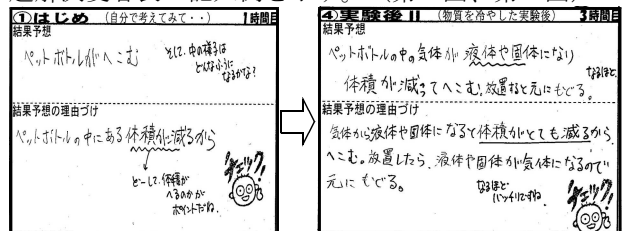 ①はじめ (自分で考えてみて・・) 1時間目
結果予想
ペットボトルがへこむ
そして、中の様子は
どんなふうに
なるかな?
結果予想の理由づけ
ペットボトルの中にある体積が減るから
どーして、体積が
へるのかが
ポイントだね。
チェック!
④実験後Ⅱ (物質を冷やした実験後) 3時間目
結果予想
ペットボトルの中の気体が液体や固体になり
体積が減ってへこむ。放置すると元にもどる。
なるほど
結果予想の理由づけ
気体から液体や固体になると体積がとても減るから
へこむ。放置したら、液体や固体が気体になるので
元にもどる。
なるほど
バッチリですね
チェック!